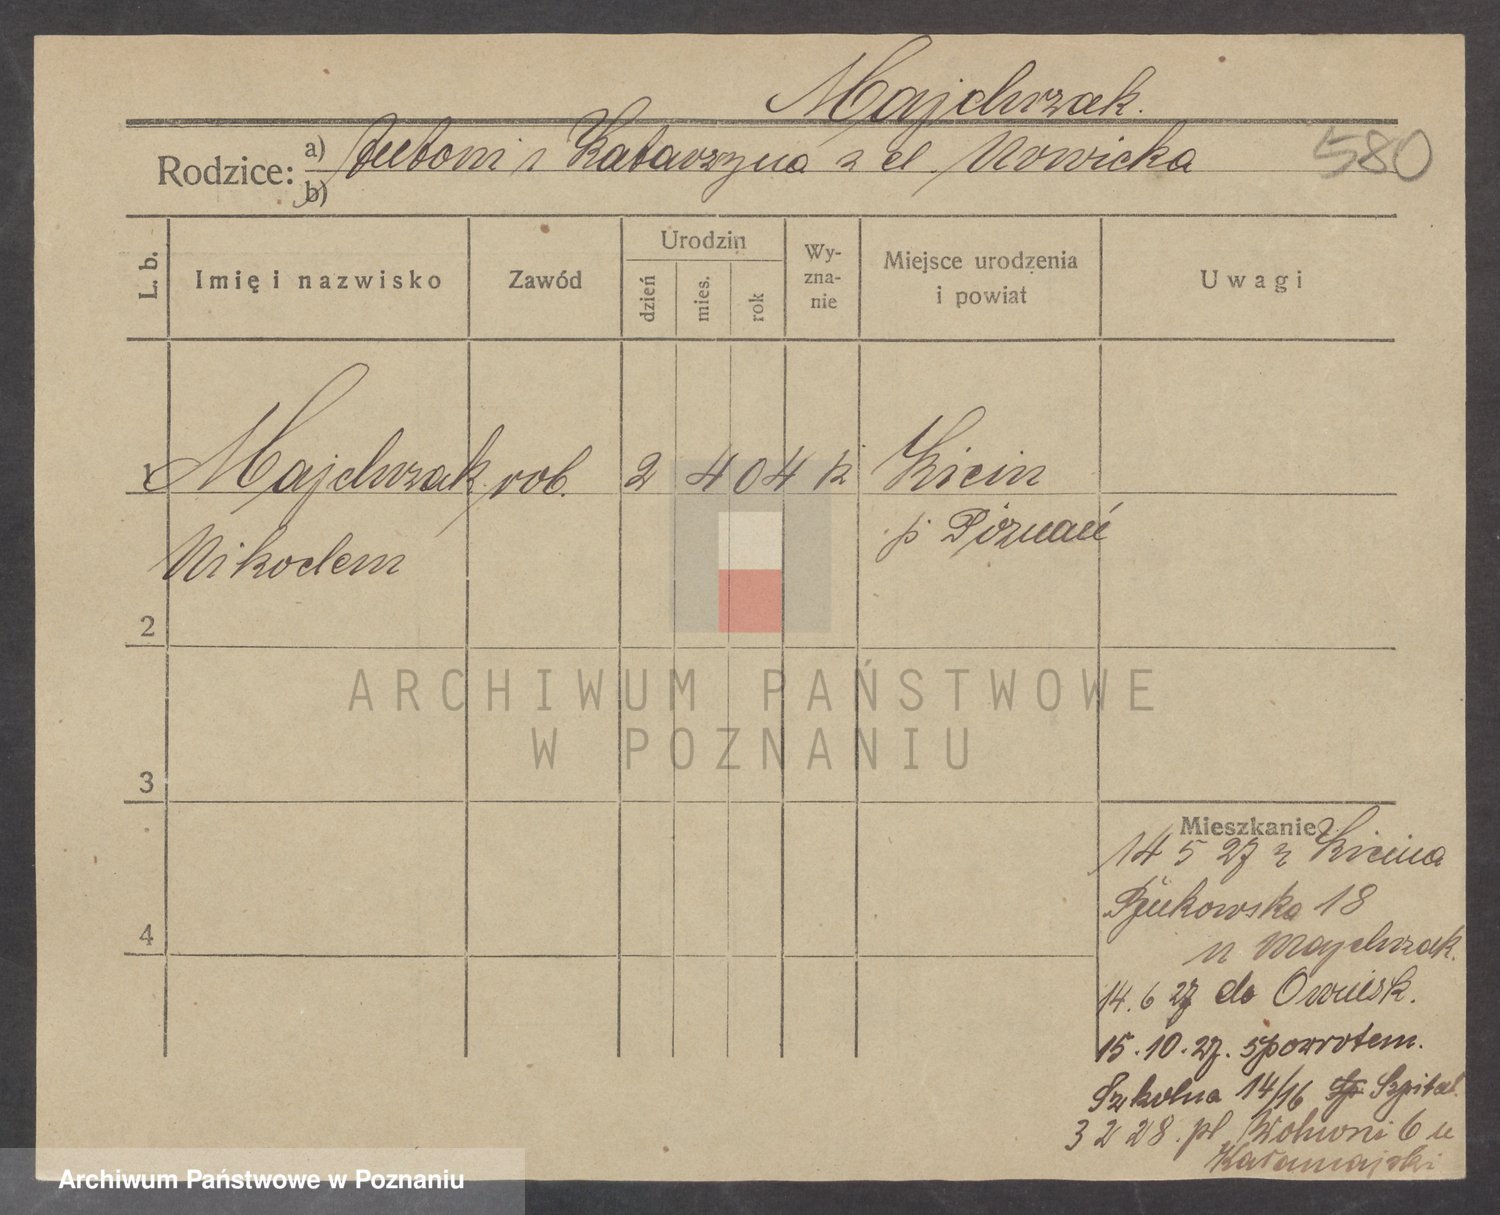 Majchrzak.
Rodzice: a) Antoni i Katarzyna z d. Nowicka
b)
580
L. b.
Imię i nazwisko
Zawód
Urodzin
dzień
mies.
rok
Wy-
zna-
nie
Miejsce urodzenia
i powiat
Uwagi
1 Majchrzak rob. 2 4 04 k Kicin
Nikodem
p. Poznań
2
ARCHIWUM PAŃSTWOWE
W POZNANIU
3
Mieszkanie
14 5 27 z Kicina
Bukowska 18
u Majchrzak.
4
14. 6 27 do Owińsk.
15. 10. 27. spowrotem.
Szkolna 14/16 Szpital.
3 2 28. pl. Wolności 6 u
Archiwum Państwowe w Poznaniu